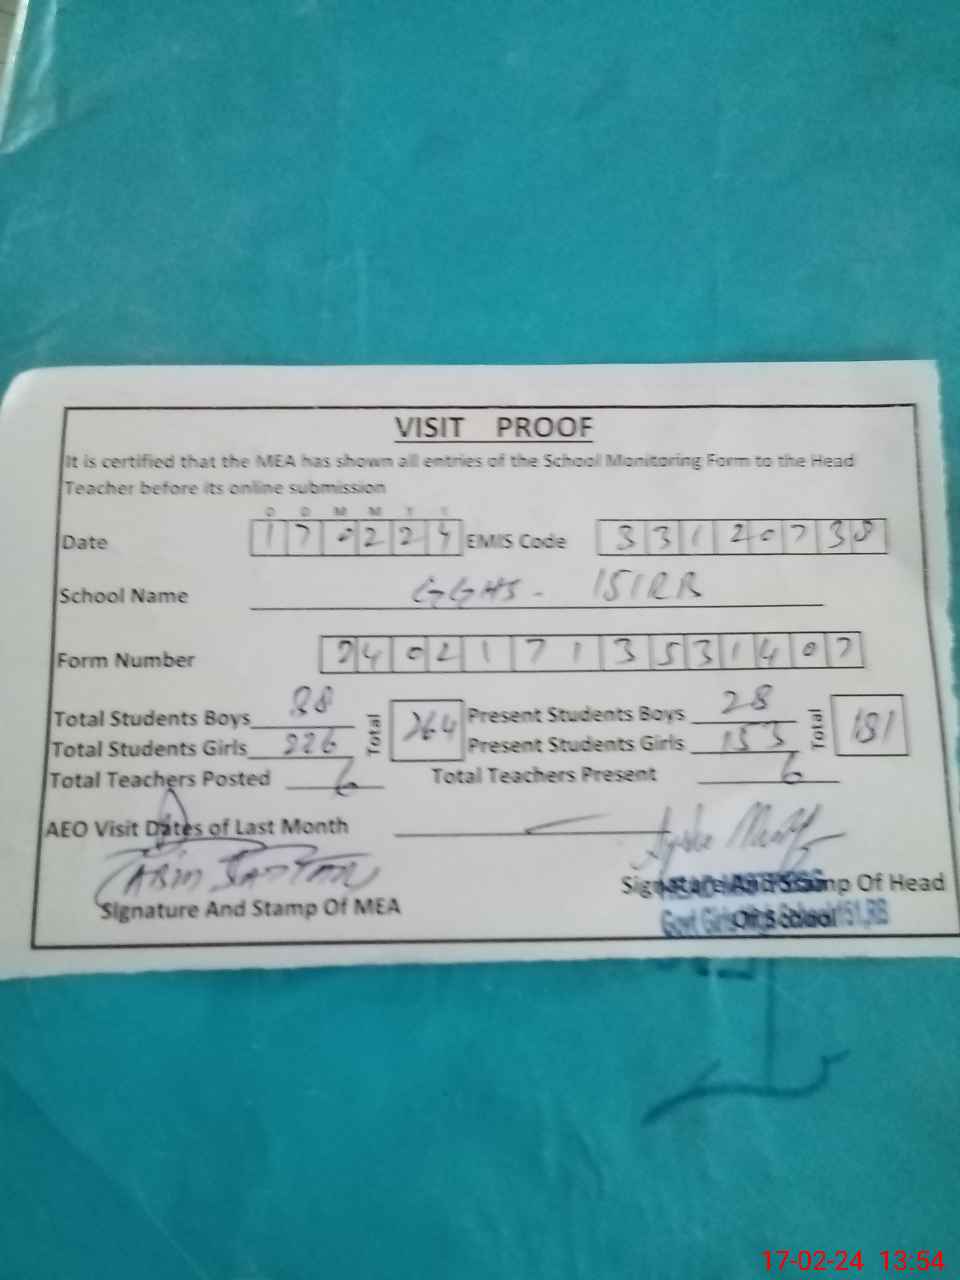 VISIT PROOF
It is certified that the MEA has shown all entries of the School Monitoring Form to the Head
Teacher before its online submission
D D M M Y Y
Date 170224 EMIS Code 33120738
School Name GGHS - 151RB
Form Number 24021713531407
Total Students Boys Total 264 Present Students Boys 28 Total 181
Total Students Girls 226 Present Students Girls 153
Total Teachers Posted 6 Total Teachers Present 6
AEO Visit Dates of Last Month
Signature And Stamp Of MEA
Signature And Stamp Of Head
Govt Girls 151,RB
17-02-24 13:54